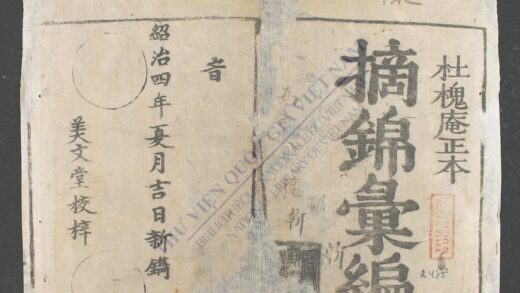 杜槐庵正本
摘錦彙編
旹
紹治四年夏月吉日新鐫
美文堂校梓
THƯ VIỆN QUỐC GIA VIỆT NAM
NATIONAL LIBRARY OF VIETNAM